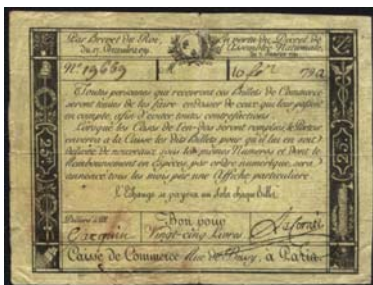 Par Brevet du Roi, en vertu du Décret de
du 17. l'Assemblée Nationale,
N.º 19669 10 792
Toutes personnes qui recevront ces Billets de Commerce
seront tenues de les faire endosser de ceux qui leur passent
en compte, afin d'éviter toutes contrefactions.
Lorsque les Cases de l'en-dos seront remplies, le Porteur
enverra à la Caisse les dits Billets pour qu'il lui en soit
délivré de nouveaux sous les mêmes Numéros et dont le
Remboursement en Espèces, par ordre numérique, sera
annoncé tous les mois par une Affiche particulière
L'Echange se payera un Sol à chaque Billet.
Délivré à M. Bon pour
Vingt-cinq Livres
Caisse de Commerce Rue de Bussy, à Paris.
25.tt
25.tt